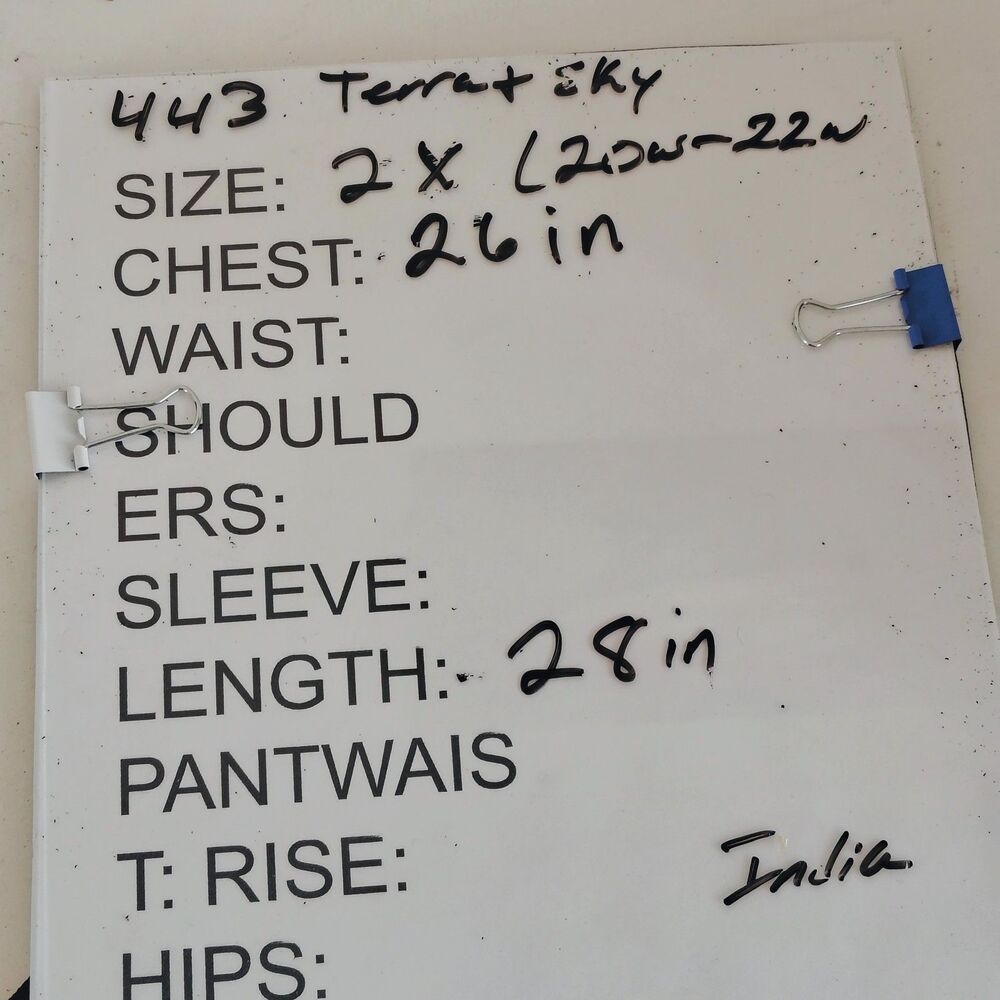 443 Terra + Sky
SIZE: 2X (20w-22w
CHEST: 26 in
WAIST:
SHOULD
ERS:
SLEEVE:
LENGTH: 28 in
PANTWAIS
T: RISE:
India
HIPS: